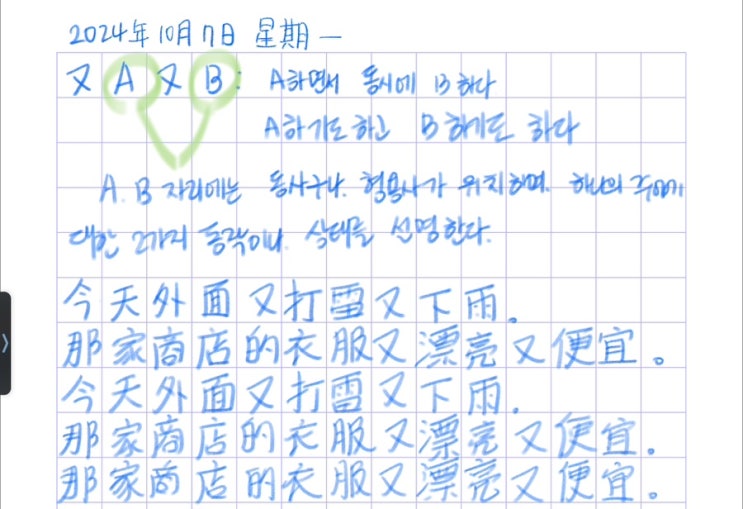 2024年10月7日 星期一
又 A 又 B : A하면서 동시에 B 하다
A하기도 하고 B 하기도 하다
A. B 자리에는 동사구나. 형용사가 위치하며. 하나의 주어에
대한 2가지 동작이나. 상태를 설명한다.
今天外面又打雷又下雨.
那家商店的衣服又漂亮又便宜。
今天外面又打雷又下雨.
那家商店的衣服又漂亮又便宜。
那家商店的衣服又漂亮又便宜。